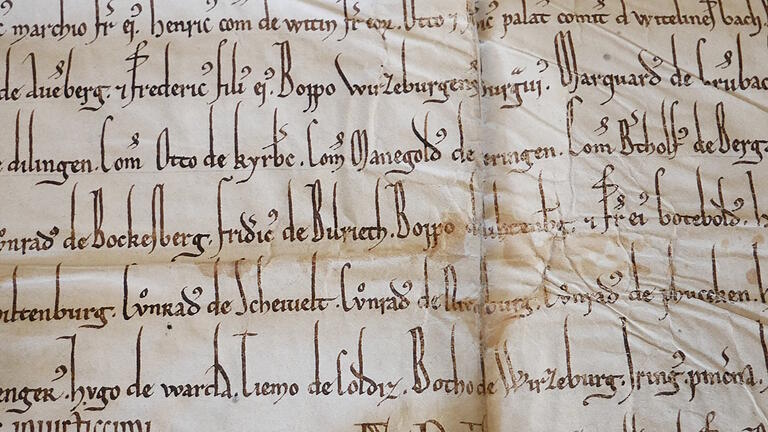 marchio fr̄ eiꝰ. henric com de witin fr̄ eoꝝ. Otto palat comit d wittelinesbach.
de auesberg. ⁊ fredericꝰ filiꝰ eiꝰ. Boppo wirzeburgensis Marquardꝰ de Grūbac
dilingen. Com̄ Otto de kyrbc. Com̄ Manegoldꝰ de eringen. Com̄ Btholfꝰ de Berg.
onradꝰ de Bockesberg. fridicꝰ de Bibrieth. Boppo ⁊ fr̄ eiꝰ boteboldꝰ.
iltenburg. Cůnradꝰ de Scheuuelt. Cůnradꝰ de Cůnradꝰ de
engerꝰ. hygo de warda. Tiemo de Coldiz. Botho de Wirzeburg. Iringꝰ
iu̅ictissimi